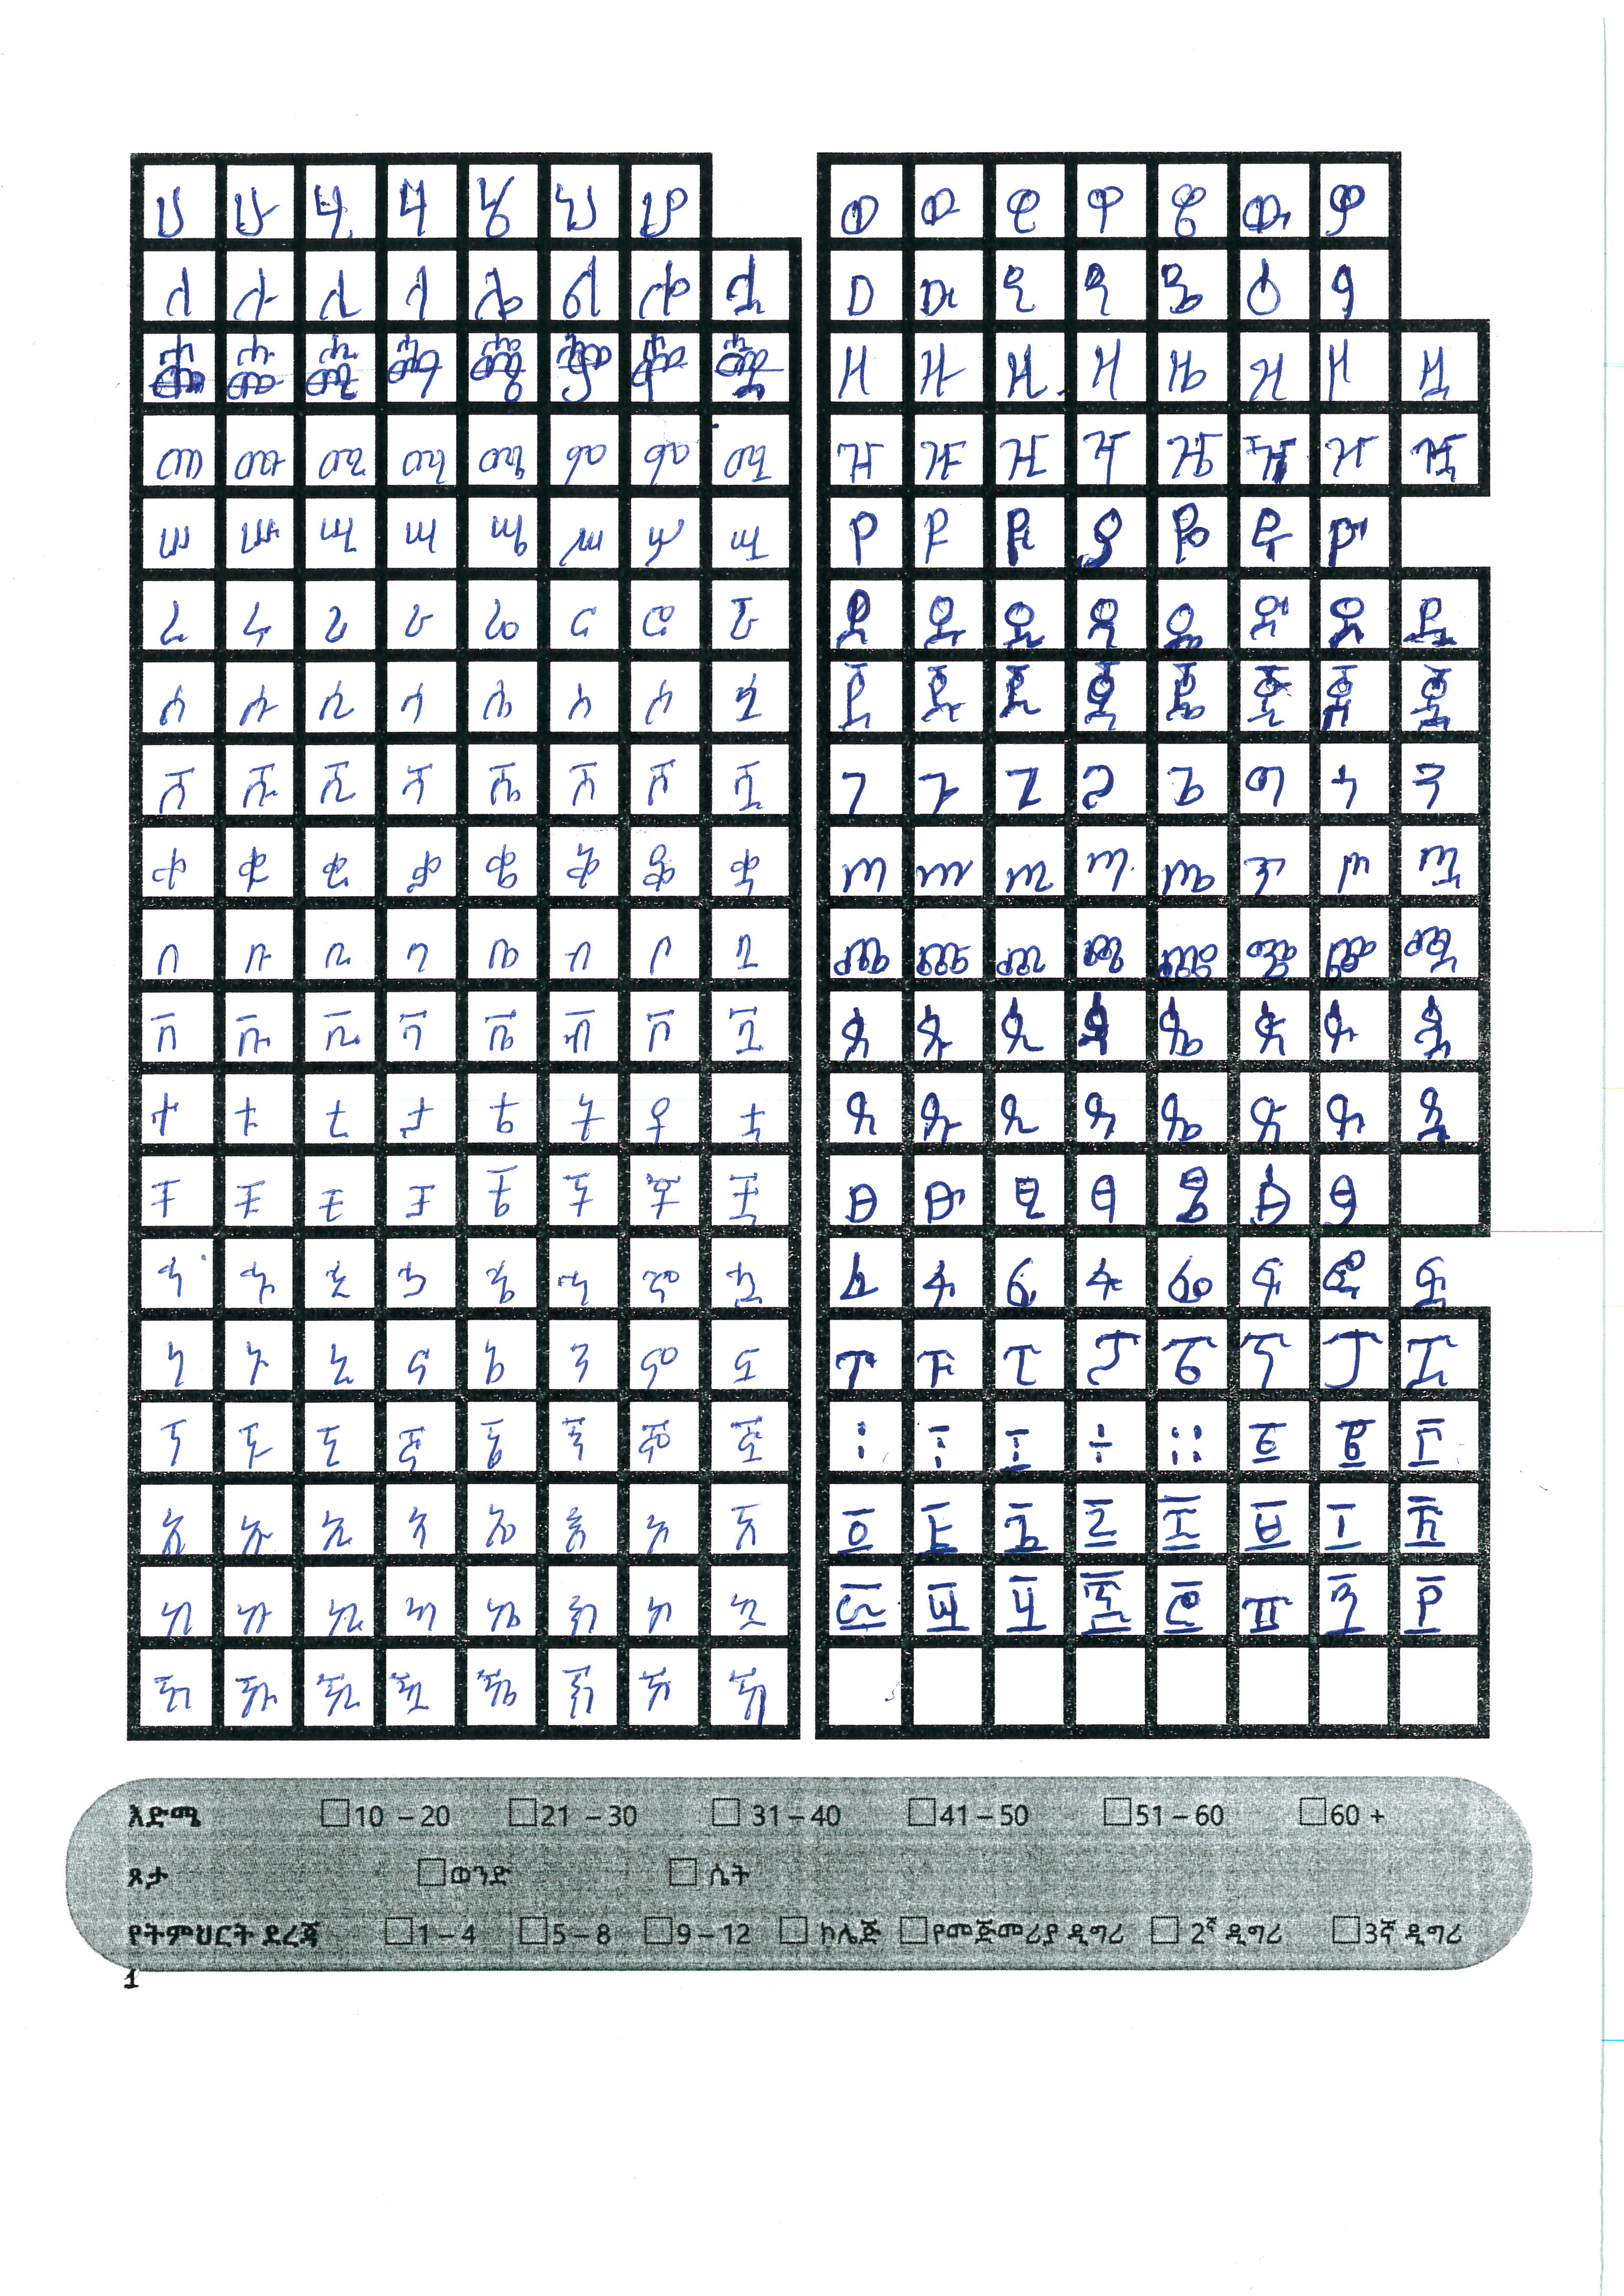 ሀ ሁ ሂ ሃ ሄ ህ ሆ
ለ ሉ ሊ ላ ሌ ል ሎ ሏ
መ ሙ ሚ ማ ሜ ም ሞ ሟ
ሠ ሡ ሢ ሣ ሤ ሥ ሦ ሧ
ረ ሩ ሪ ራ ሬ ር ሮ ሯ
ሰ ሱ ሲ ሳ ሴ ስ ሶ ሷ
ሸ ሹ ሺ ሻ ሼ ሽ ሾ ሿ
ቀ ቁ ቂ ቃ ቄ ቅ ቆ ቋ
በ ቡ ቢ ባ ቤ ብ ቦ ቧ
ቨ ቩ ቪ ቫ ቬ ቭ ቮ ቯ
ተ ቱ ቲ ታ ቴ ት ቶ ቷ
ቸ ቹ ቺ ቻ ቼ ች ቾ ቿ
ኀ ኁ ኂ ኃ ኄ ኅ ኆ ኋ
ነ ኑ ኒ ና ኔ ን ኖ ኗ
ኘ ኙ ኚ ኛ ኜ ኝ ኞ ኟ
አ ኡ ኢ ኣ ኤ እ ኦ ኧ
ከ ኩ ኪ ካ ኬ ክ ኮ ኳ
ኸ ኹ ኺ ኻ ኼ ኽ ኾ ዃ
ወ ዉ ዊ ዋ ዌ ው ዎ
ዐ ዑ ዒ ዓ ዔ ዕ ዖ
ዘ ዙ ዚ ዛ ዜ ዝ ዞ ዟ
ዠ ዡ ዢ ዣ ዤ ዥ ዦ ዧ
የ ዩ ዪ ያ ዬ ይ ዮ
ደ ዱ ዲ ዳ ዴ ድ ዶ ዷ
ጀ ጁ ጂ ጃ ጄ ጅ ጆ ጇ
ገ ጉ ጊ ጋ ጌ ግ ጎ ጓ
ጠ ጡ ጢ ጣ ጤ ጥ ጦ ጧ
ጨ ጩ ጪ ጫ ጬ ጭ ጮ ጯ
ጰ ጱ ጲ ጳ ጴ ጵ ጶ ጷ
ጸ ጹ ጺ ጻ ጼ ጽ ጾ ጿ
ፀ ፁ ፂ ፃ ፄ ፅ ፆ
ፈ ፉ ፊ ፋ ፌ ፍ ፎ ፏ
ፐ ፑ ፒ ፓ ፔ ፕ ፖ ፗ
፡ ፣ ፤ ÷ ። ፩ ፪ ፫
፬ ፭ ፮ ፯ ፰ ፱ ፲ ፳
፴ ፵ ፶ ፷ ፸ ፹ ፺ ፻
እድሜ 10 – 20 21 – 30 31 – 40 41 – 50 51 – 60 60 +
ጾታ ወንድ ሴት
የትምህርት ደረጃ 1 – 4 5 – 8 9 – 12 ኮሌጅ የመጀመሪያ ዲግሪ 2ኛ ዲግሪ 3ኛ ዲግሪ
1